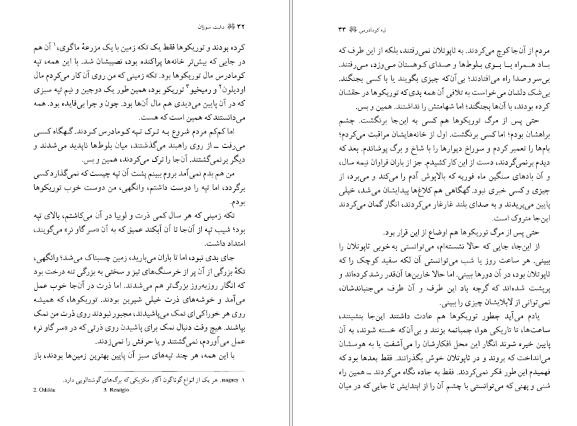 ۳۲ دشت سوزان
کرده بودند و توریکوها فقط یک تکه زمین با یک مزرعهٔ ماگوی،۱ آن هم
در جایی که بیش‌تر خانه‌ها پراکنده بود، نصیبشان شد. با این همه، تپه
کومادرس مال توریکوها بود. تکه زمینی که من روی آن کار می‌کردم مال
اودیلون۲ و رمیخیو۳ توریکو بود، همین‌طور یک دوجین و نیم تپه سبزی
که در آن پایین می‌دیدی هم مال آن‌ها بود. چون و چرا بی‌فایده بود. همه
می‌دانستند که همین است که هست.
اما کم‌کم مردم شروع به ترک تپه کومادرس کردند. گهگاه کسی
می‌رفت ــ از روی راهبند می‌گذشتند، میان بلوط‌ها ناپدید می‌شدند و
دیگر برنمی‌گشتند. آن‌جا را ترک می‌کردند، همین و بس.
من هم بدم نمی‌آمد بروم ببینم پشت آن تپه چیست که نمی‌گذارد کسی
برگردد، اما تپه را دوست داشتم، وانگهی، من دوست خوب توریکوها
بودم.
تکه زمینی که هر سال کمی ذرت و لوبیا در آن می‌کاشتم، بالای تپه
بود؛ شیب تپه از آن‌جا تا آن آبکند عمیق که به آن «سر گاو نر» می‌گویند،
امتداد داشت.
جای بدی نبود، اما تا باران می‌بارید، زمین چسبناک می‌شد؛ وانگهی،
تکهٔ بزرگی از آن پر از خرسنگ‌های تیز و سختی به بزرگی تنه درخت بود
که انگار روزبه‌روز بزرگ‌تر هم می‌شدند. اما ذرت در آن‌جا خوب عمل
می‌آمد و خوشه‌های ذرت خیلی شیرین بودند. توریکوها، که همیشه
روی هر خوراکی‌ای نمک می‌پاشیدند، مجبور نبودند روی ذرت من نمک
بپاشند. هیچ وقت دنبال نمک برای پاشیدن روی ذرتی که در «سر گاو نر»
عمل می‌آوردم، نمی‌گشتند و یا حرفش را نمی‌زدند.
با این همه، هر چند تپه‌های سبز آن پایین بهترین زمین‌ها بودند، باز
۱. maguey، هر یک از انواع گوناگون آگاو مکزیکی که برگ‌های گوشتالویی دارد.
2. Odilón 3. Remigio
تپه کومادرس ۳۳
مردم از آن‌جا کوچ می‌کردند. به ثاپوتلان نمی‌رفتند، بلکه از این طرف که
باد همراه با بوی بلوط‌ها و صدای کوهستان می‌وزد، می‌رفتند.
بی‌سروصدا راه می‌افتادند؛ بی‌آن‌که چیزی بگویند یا با کسی بجنگند.
بی‌شک دلشان می‌خواست به تلافی آن همه بدی که توریکوها در حقشان
کرده بودند، با آن‌ها بجنگند؛ اما شهامتش را نداشتند. همین و بس.
حتی پس از مرگ توریکوها هم کسی به این‌جا برنگشت. چشم
براهشان بودم؛ اما کسی برنگشت. اول از خانه‌هایشان مراقبت می‌کردم؛
بام‌ها را تعمیر کردم و سوراخ دیوارها را با شاخ و برگ پوشاندم. بعد که
دیدم برنمی‌گردند، دست از این کار کشیدم. جز از باران فراوان نیمه سال،
و آن بادهای سنگین ماه فوریه که بالاپوش آدم را می‌کند و می‌برد، از
چیزی و کسی خبری نبود. گهگاهی هم کلاغ‌ها پیدایشان می‌شد، خیلی
پایین می‌پریدند و به صدای بلند غارغار می‌کردند، انگار گمان می‌کردند
این‌جا متروک است.
حتی پس از مرگ توریکوها هم اوضاع از این قرار بود.
از این‌جا، جایی که حالا نشسته‌ام، می‌توانستی به‌خوبی ثاپوتلان را
ببینی. هر ساعت روز یا شب می‌توانستی آن لکه سفید کوچک را که
ثاپوتلان بود، در آن دورها ببینی. اما حالا خاربن‌ها آن‌قدر رشد کرده‌اند و
پرپشت شده‌اند که گرچه باد این طرف و آن طرف می‌جنباندشان،
نمی‌توانی از لابلایشان چیزی را ببینی.
یادم می‌آید چطور توریکوها هم عادت داشتند این‌جا بنشینند،
ساعت‌ها، تا تاریکی هوا، چمباتمه بزنند و بی‌آن‌که خسته شوند، به آن
پایین خیره شوند انگار این محل افکارشان را می‌آشفت یا به هوسشان
می‌انداخت که بروند و در ثاپوتلان خوش بگذرانند. فقط بعدها بود که
فهمیدم این طور فکر نمی‌کردند. فقط به جاده نگاه می‌کردند ــ همین راه
شنی و پهنی که می‌توانستی با چشم آن را از ابتدایش تا جایی که در میان